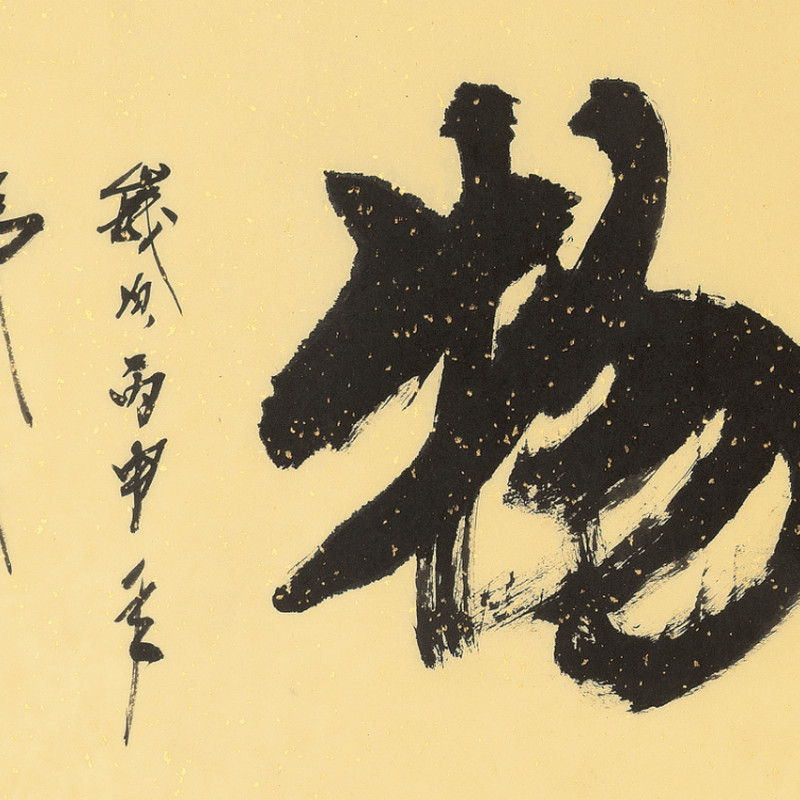 物
歲次丙申年